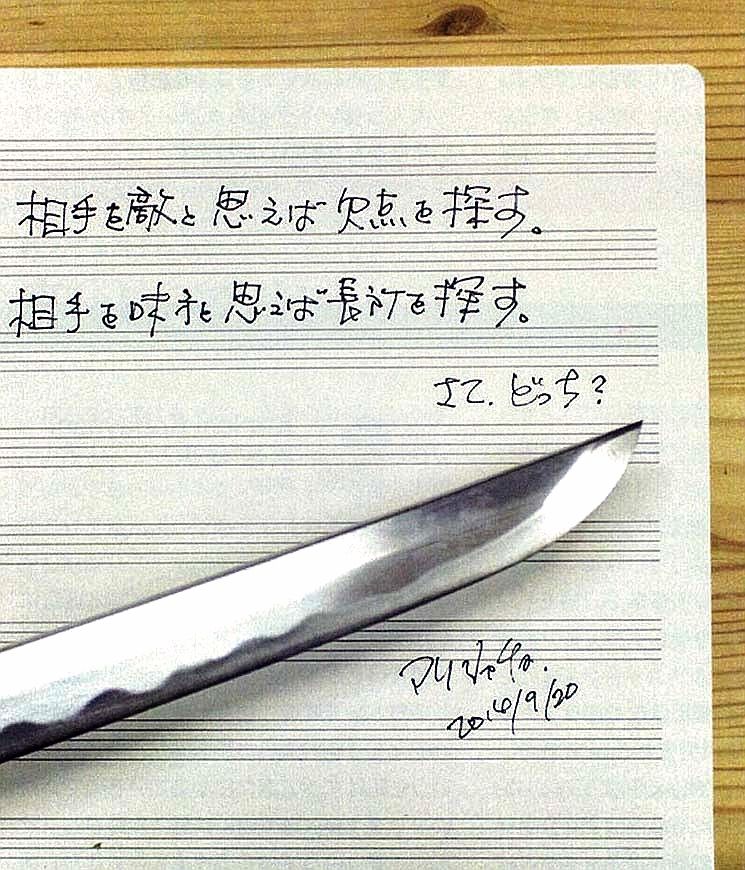 相手を敵と思えば欠点を探す。
相手を味方と思えば長所を探す。
さて、どっち?
2014/9/20